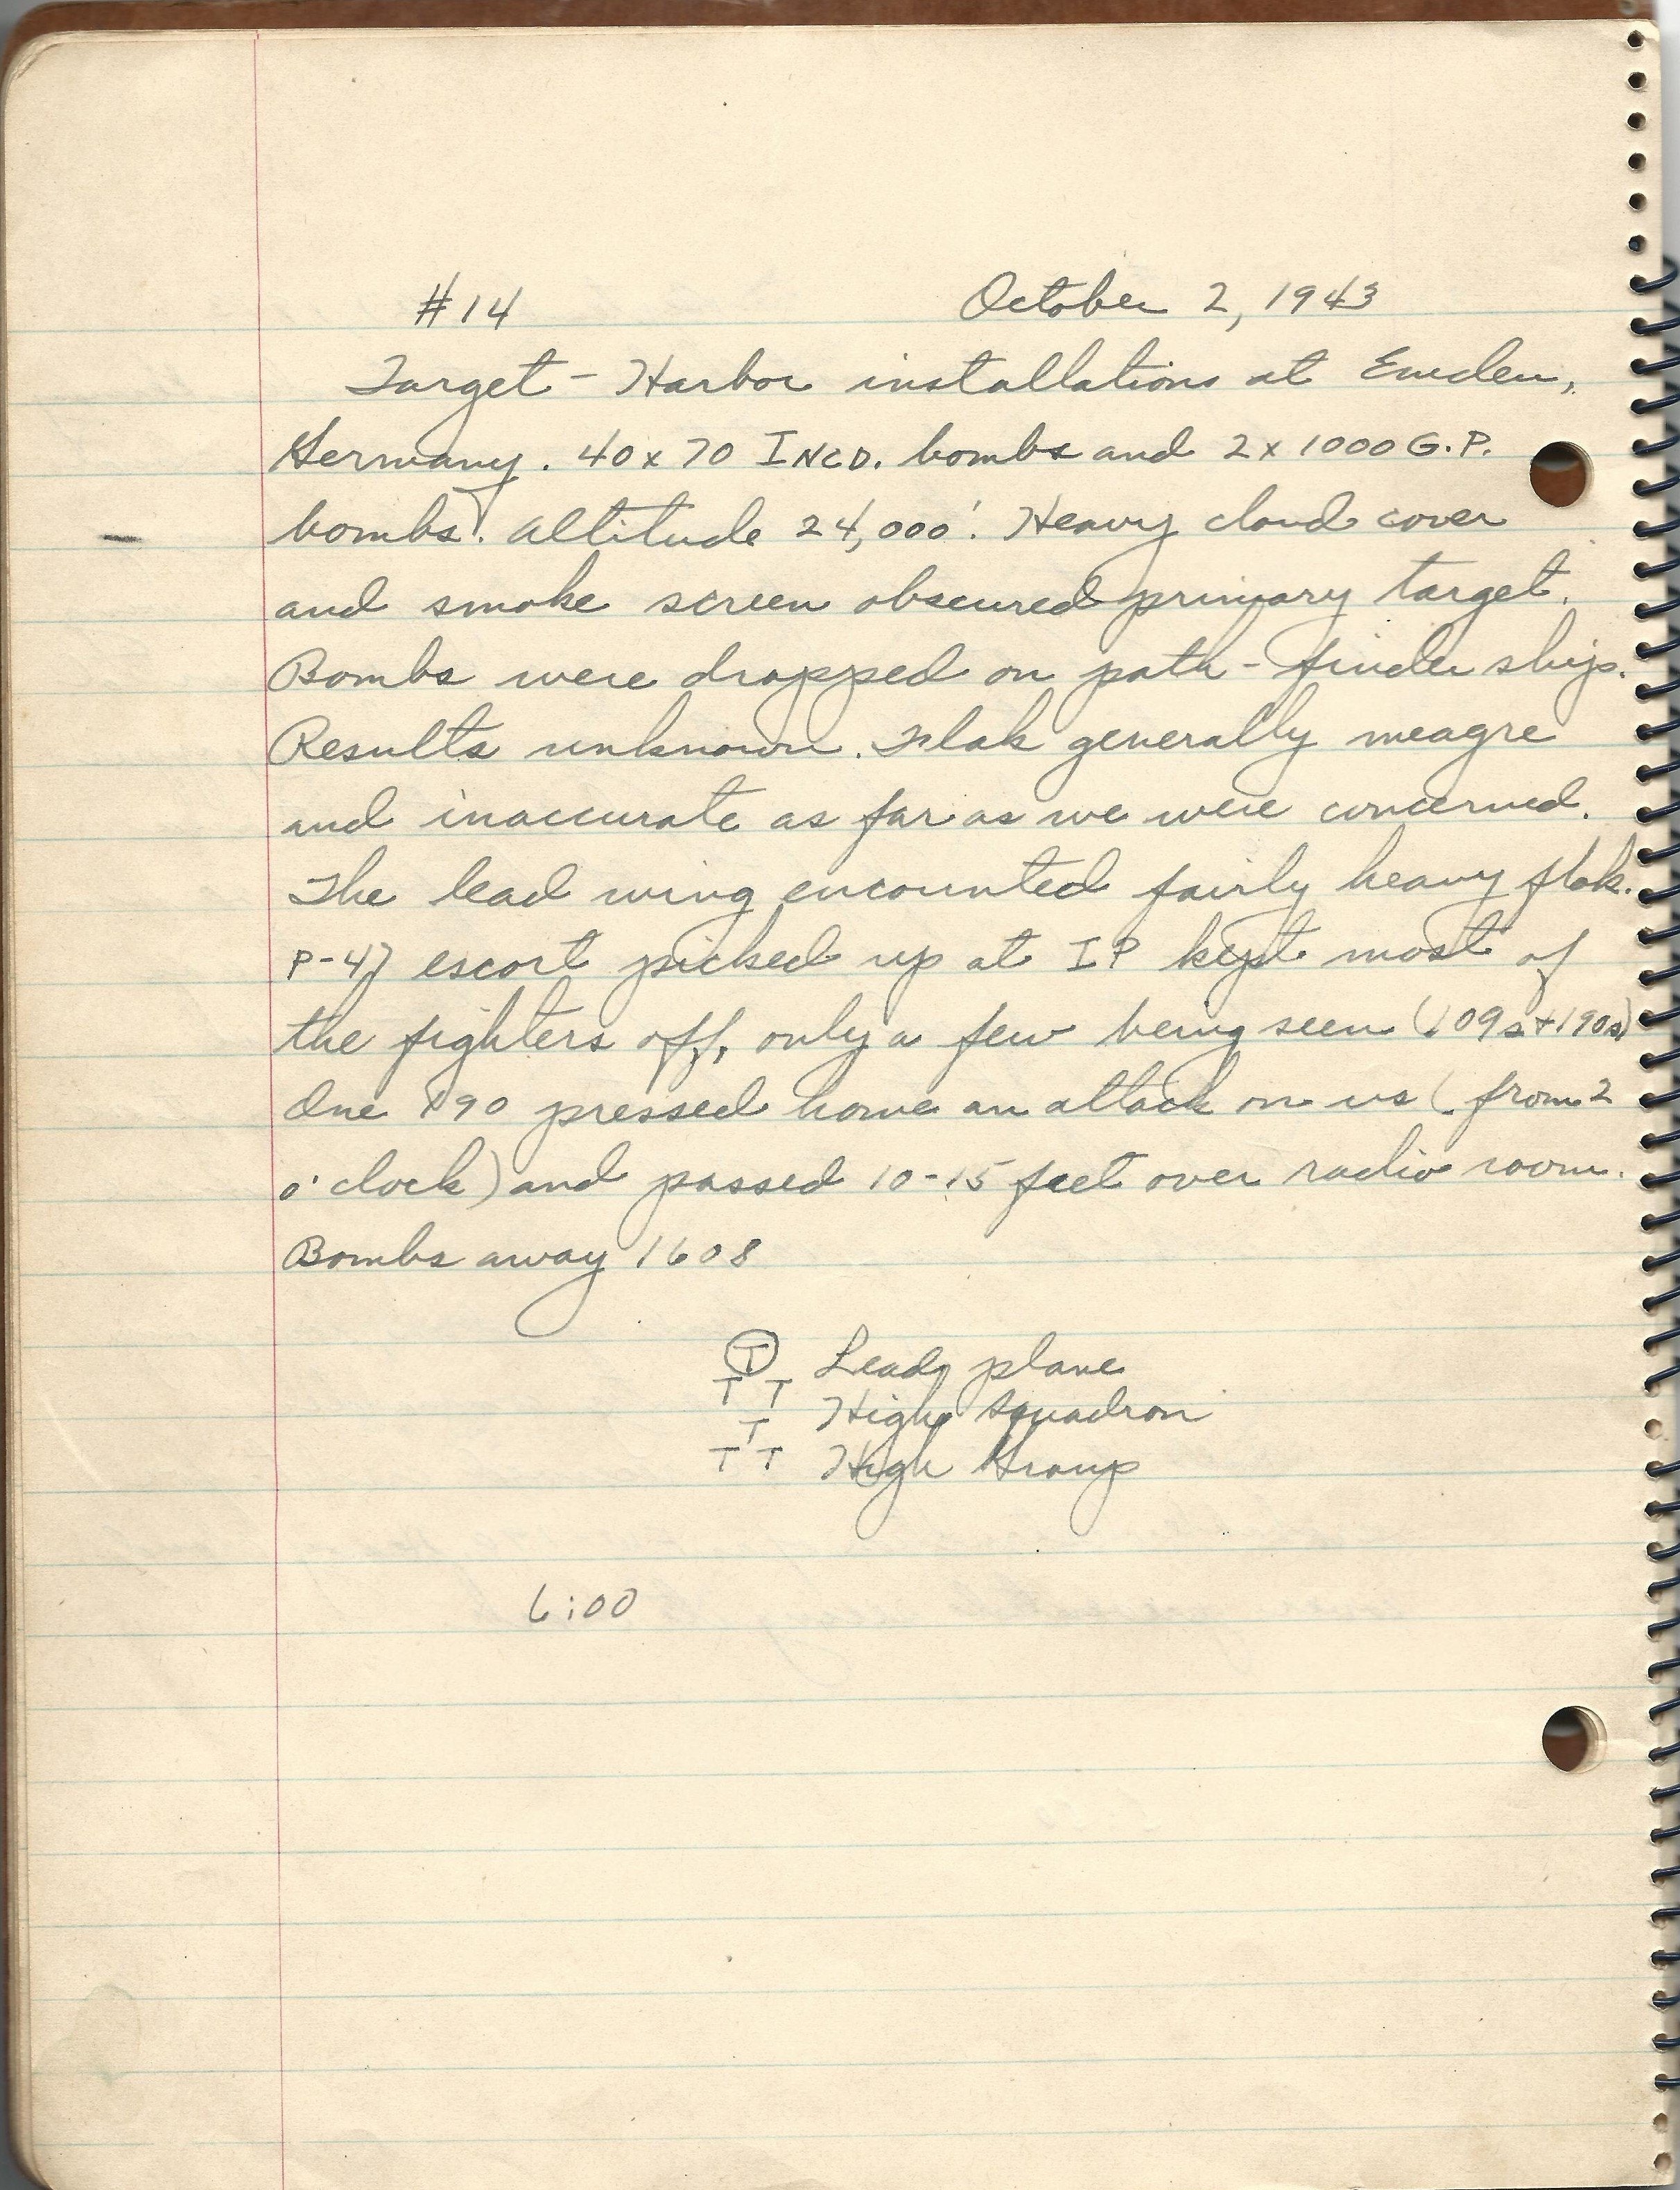 #14 October 2, 1943
Target - Harbor installations at Emden,
Germany. 40 x 70 INCD. bombs and 2 x 1000 G.P.
bombs. Altitude 24,000'. Heavy cloud cover
and smoke screen obscured primary target.
Bombs were dropped on path-finder ship.
Results unknown. Flak generally meagre
and inaccurate as far as we were concerned.
The lead wing encounted fairly heavy flak.
P-47 escort picked up at IP kept most of
the fighters off, only a few being seen (109s + 190s)
One 190 pressed home an attack on us (from 2
o'clock) and passed 10-15 feet over radio room.
Bombs away 1608
T Lead plane
T T
T High Squadron
T T High Group
6:00